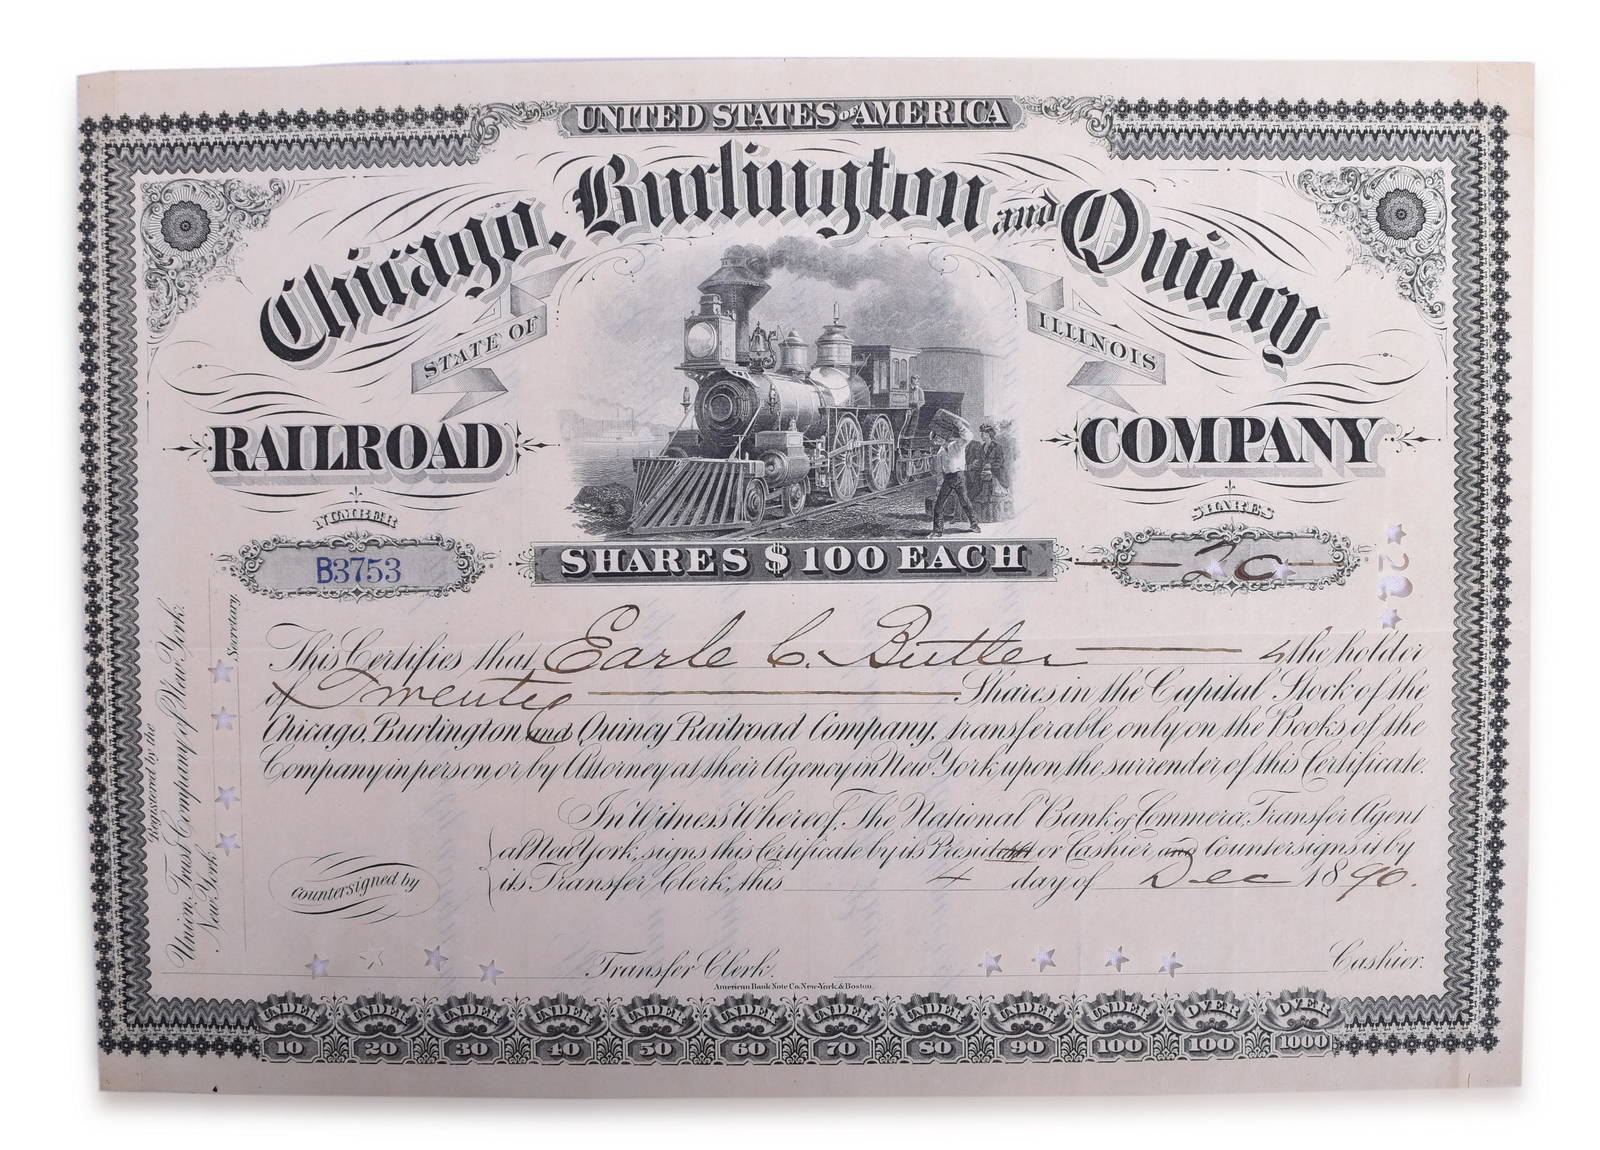 UNITED STATES OF AMERICA
Chicago, Burlington and Quincy
STATE OF ILLINOIS
RAILROAD COMPANY
NUMBER
SHARES
B3753
SHARES $100 EACH
20
20
This Certifies that Earle C. Butler is the holder
of Twenty Shares in the Capital Stock of the
Chicago, Burlington and Quincy Railroad Company, transferable only on the Books of the
Company in person or by Attorney at their Agency in New York upon the surrender of this Certificate.
In Witness Whereof, The National Bank of Commerce, Transfer Agent
at New York, signs this Certificate by its President or Cashier and Countersigns it by
its Transfer Clerk, this 4 day of Dec 1890.
Countersigned by
Transfer Clerk.
Cashier.
Registered by the
Union Trust Company of New York.
New York
Secretary.
American Bank Note Co. New-York & Boston.
UNDER UNDER UNDER UNDER UNDER UNDER UNDER UNDER UNDER UNDER OVER OVER
10 20 30 40 50 60 70 80 90 100 100 1000